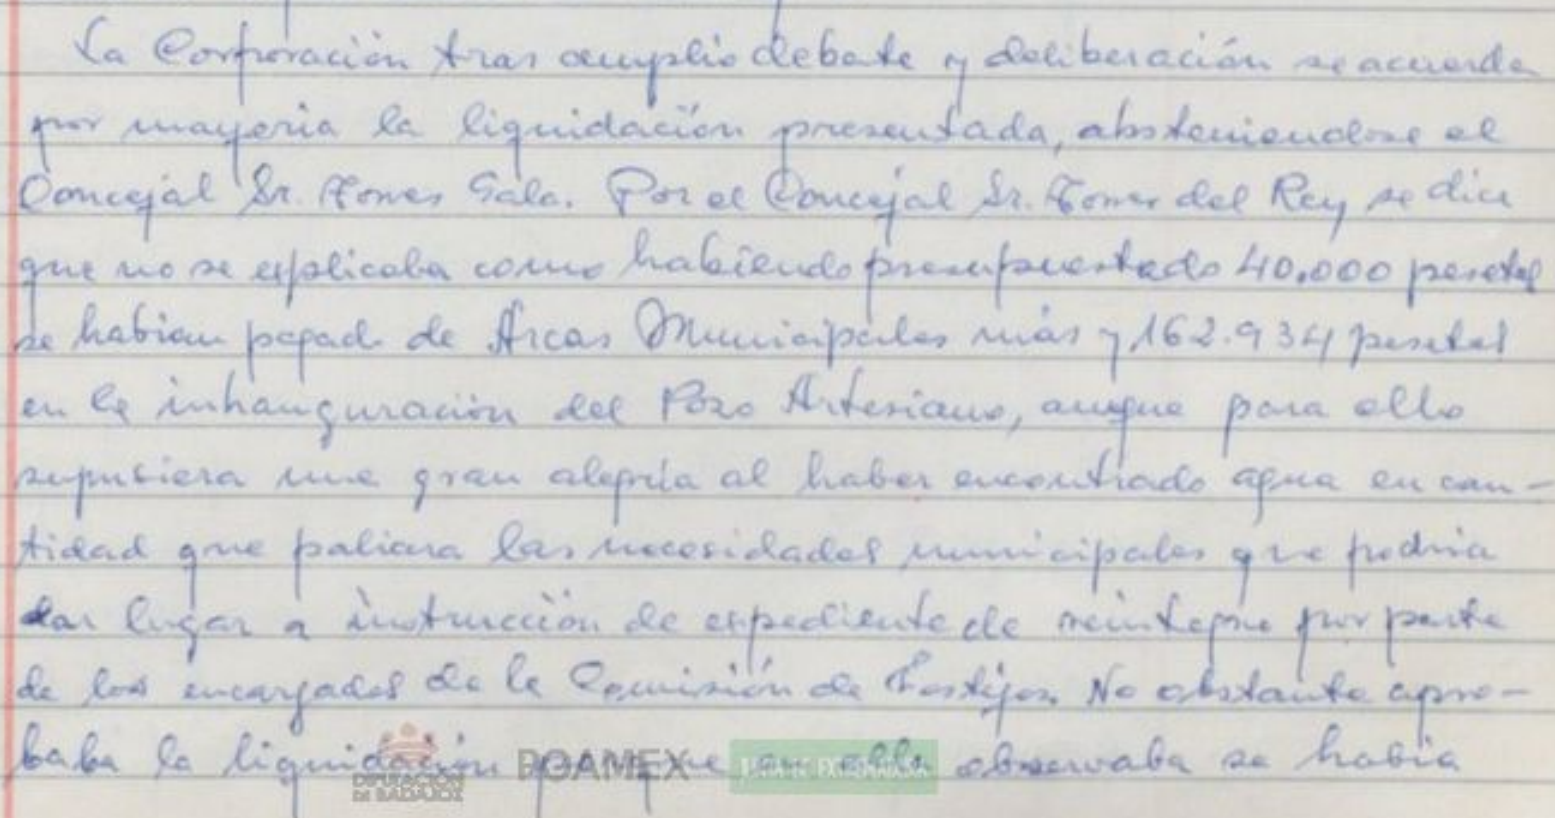 La Corporación tras amplio debate y deliberación se acuerda
por mayoria la liquidación presentada, absteniendose el
Concejal Sr. Torres Gala. Por el Concejal Sr. Torres del Rey se dice
que no se esplicaba como habiendo presupuestado 40.000 pesetas
se habian pagado de Arcas Municipales más y 162.934 pesetas
en la inhauguración del Pozo Artesiano, aunque para ello
supusiera una gran alegría al haber encontrado agua en can-
tidad que paliara las necesidades municipales que podria
dar lugar a instrucción de expediente de reintegro por parte
de los encargados de la Comisión de Festejos. No obstante apro-
baba la liquidación porque en ella observaba se habia
DIPUTACIÓN DE BADAJOZ
BOAMEX
JUNTA DE EXTREMADURA